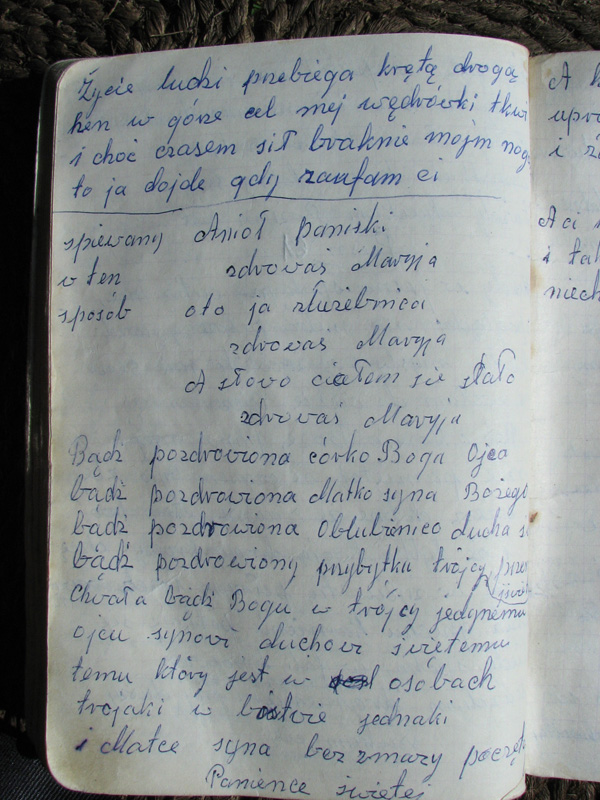 Życie ludzi przebiega krętą drogą
hen w górze cel mej wędrówki tkwi
i choć czasem sił braknie mojm nog
to ja dojde gdy zaufam ci
spiewany Anioł paniski
zdrowaś Maryja
w ten
sposób oto ja służebnica
zdrowaś Maryja
A słowo ciałom sie stało
zdrowaś Maryja
Bądź pozdrowiona córko Boga Ojca
bądź pozdrowiona Matko syna Bożego
bądź pozdrowiona Oblubienico ducha s
bądź pozdrowiony przybytku trójcy prze
jświę
Chwała bądź Bogu w trójcy jedynemu
ojcu synowi duchowi świętemu
temu który jest w osobach
trojaki w bóstwie jednaki
i Matce syna bez zmazy poczęt
Panience świętej
A
upro
i
A ci
i tak
niech